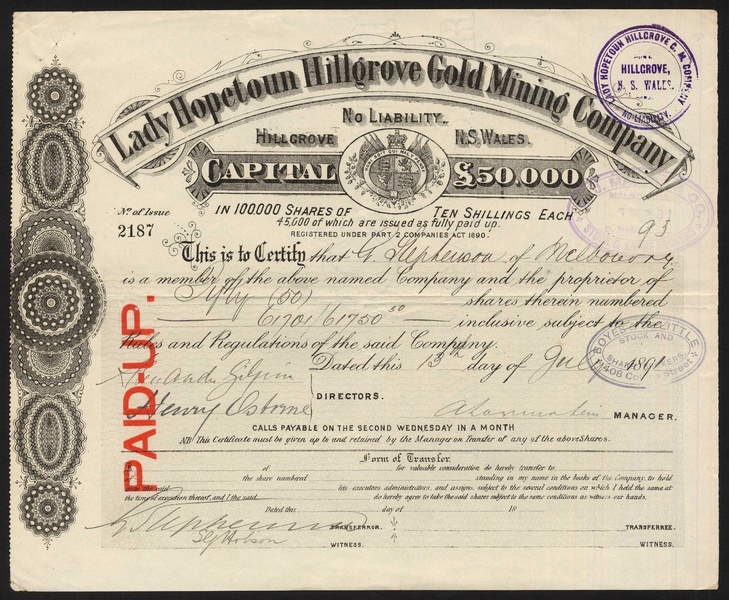 Lady Hopetoun Hillgrove Gold Mining Company
LADY HOPETOUN HILLGROVE G. M. COMPANY
HILLGROVE,
N. S. WALES.
NO-LIABILITY.
No LIABILITY.
HILLGROVE N.S.WALES.
CAPITAL £50.000
No. of Issue
2187
IN 100,000 SHARES OF TEN SHILLINGS EACH
45,000 of which are issued as fully paid up.
REGISTERED UNDER PART 2 COMPANIES ACT 1890.
93
This is to Certify that G. Stephenson of Melbourne
is a member of the above named Company and the proprietor of
Fifty (50) shares therein numbered
61701/61750 50 inclusive subject to the
Rules and Regulations of the said Company.
Dated this 13th day of July 189
BOYES & LITTLE
STOCK AND
SHARE BROKERS
408 Street
PAID UP.
Gilpin
Henry Osborne
DIRECTORS.
MANAGER.
CALLS PAYABLE ON THE SECOND WEDNESDAY IN A MONTH
NB This Certificate must be given up to and retained by the Manager on Transfer of any of the above Shares.
Form of Transfer.
of for valuable consideration do hereby transfer to
the share numbered standing in my name in the books of the Company, to hold
his executors administrators, and assigns, subject to the several conditions on which I held the same at
the time of execution thereof, and I the said do hereby agree to take the said shares subject to the same conditions as witness our hands.
Dated this day of 18
G Stephenson TRANSFERROR. TRANSFERREE.
Hobson WITNESS. WITNESS.